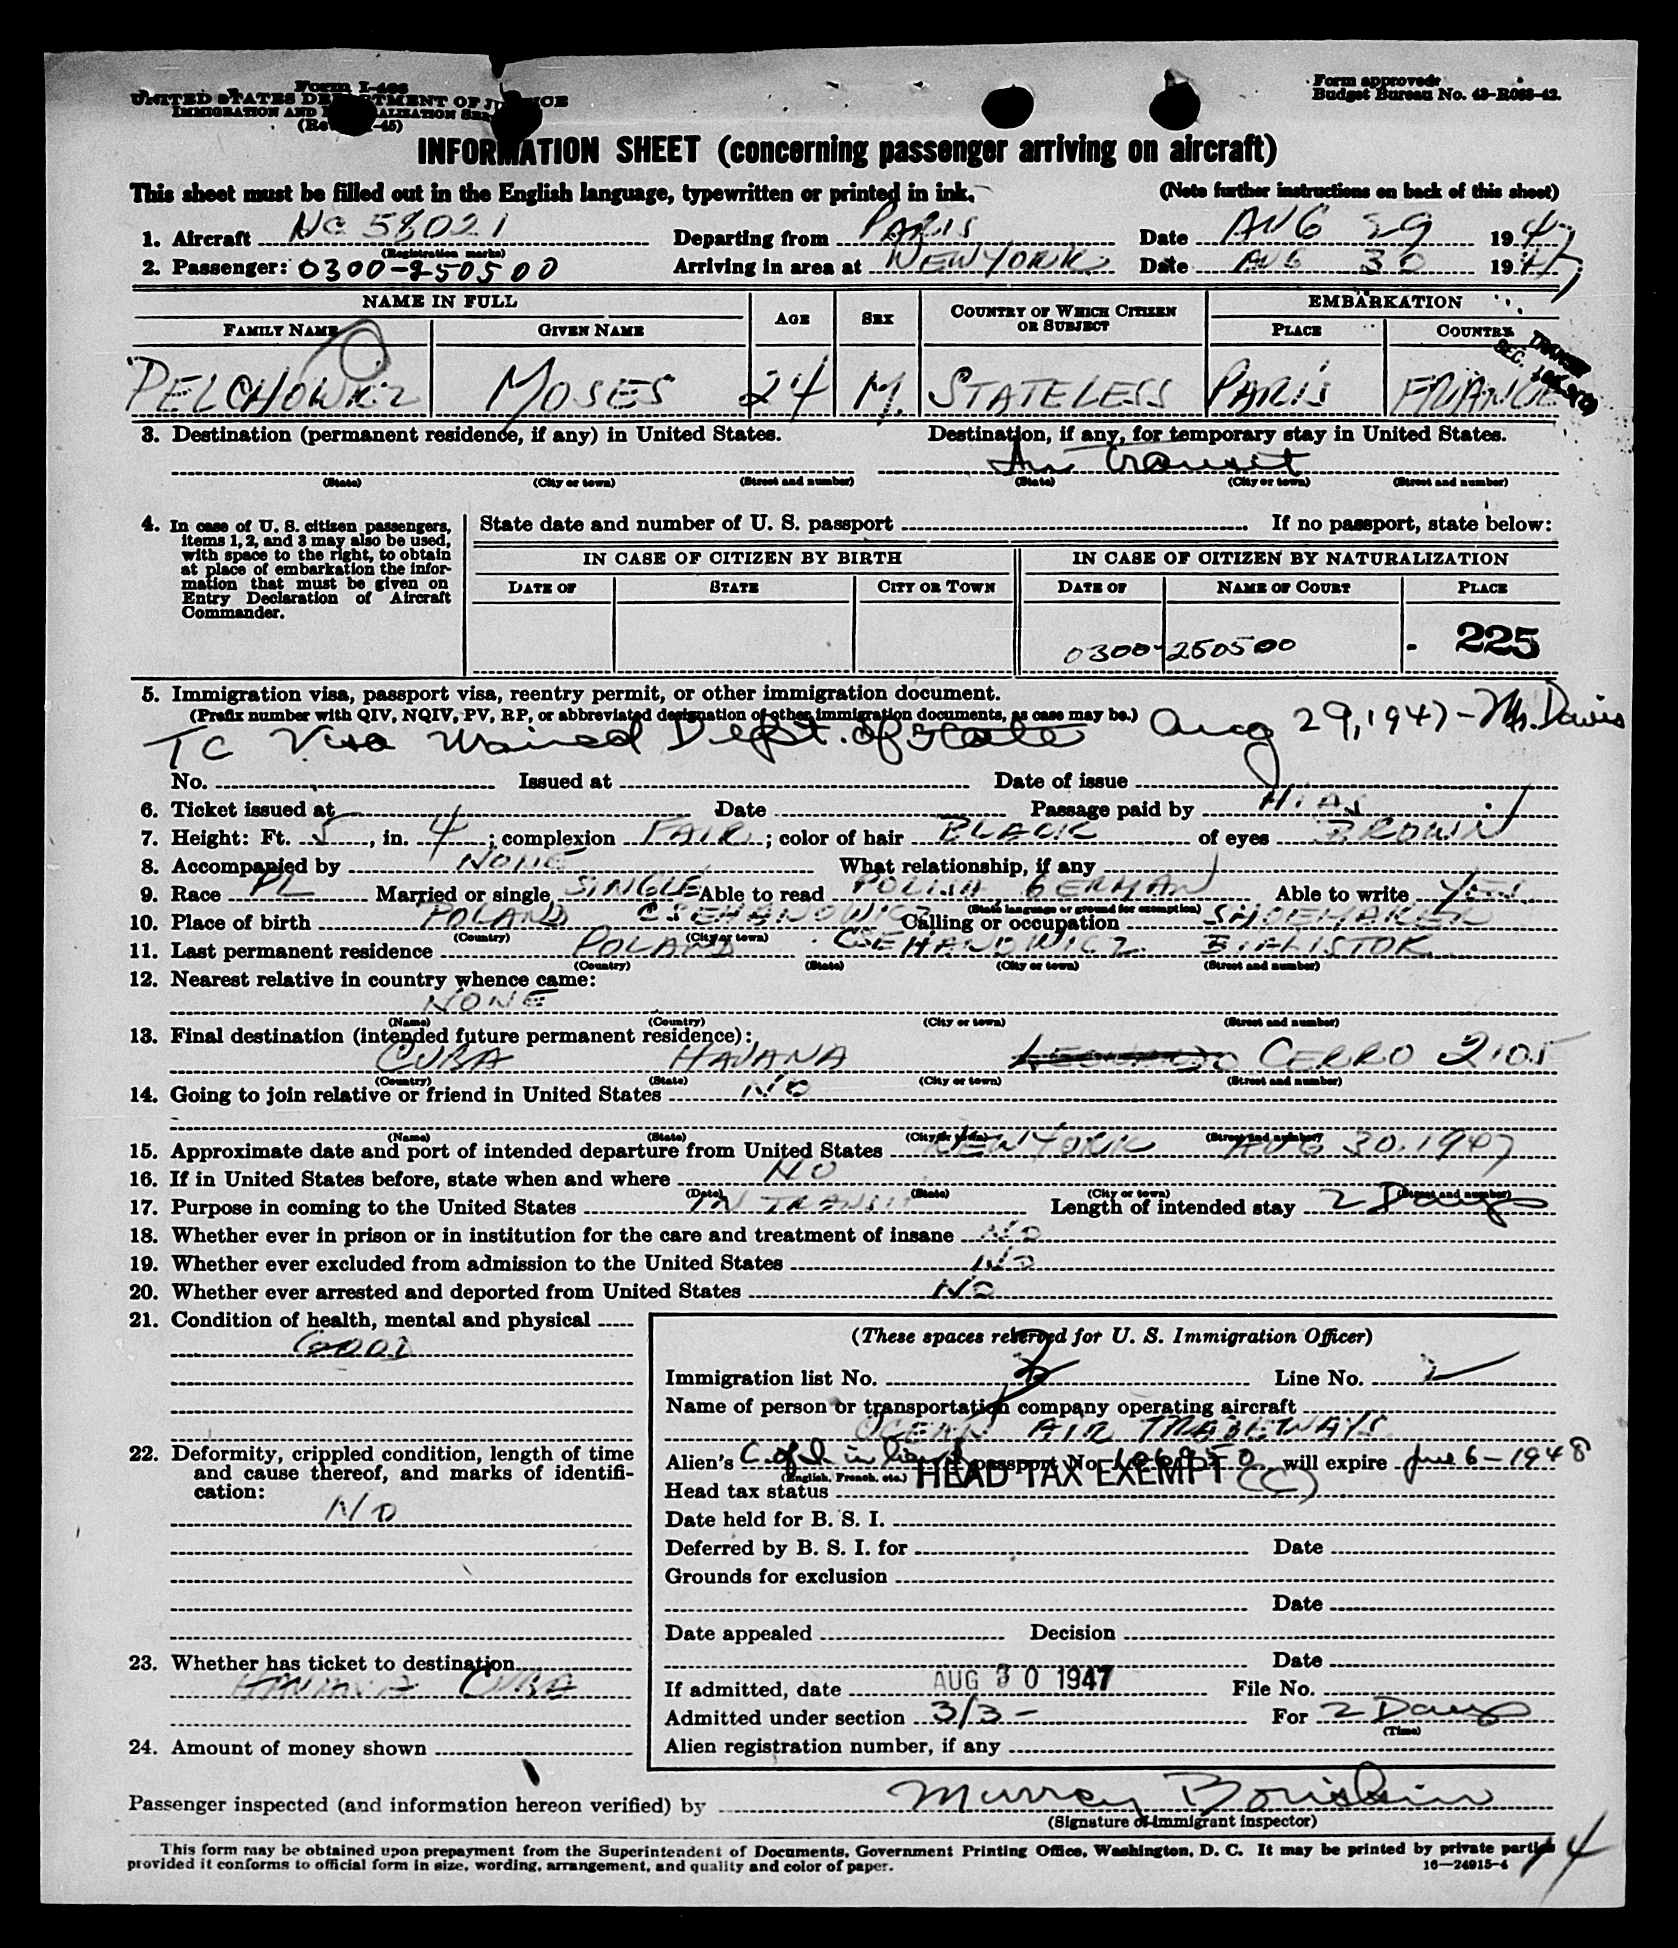 Form I-466
UNITED STATES DEPARTMENT OF JUSTICE
IMMIGRATION AND NATURALIZATION SER
(Rev. -45)
Form approved:
Budget Bureau No. 43-R083-42.
INFORMATION SHEET (concerning passenger arriving on aircraft)
This sheet must be filled out in the English language, typewritten or printed in ink. (Note further instructions on back of this sheet)
1. Aircraft NC 58021 Departing from PARIS Date AUG 29 1947
(Registration marks)
2. Passenger: 0300-250500 Arriving in area at NEW YORK Date AUG 30 1947
NAME IN FULL AGE SEX COUNTRY OF WHICH CITIZEN OR SUBJECT EMBARKATION
FAMILY NAME GIVEN NAME PLACE COUNTRY
TRANSIT
SEC.
PELCHOWICZ MOSES 24 M. STATELESS PARIS FRANCE
3. Destination (permanent residence, if any) in United States. Destination, if any, for temporary stay in United States.
In Transit
(State) (City or town) (Street and number) (State) (City or town) (Street and number)
4. In case of U. S. citizen passengers, items 1, 2, and 3 may also be used, with space to the right, to obtain at place of embarkation the information that must be given on Entry Declaration of Aircraft Commander.
State date and number of U. S. passport If no passport, state below:
IN CASE OF CITIZEN BY BIRTH IN CASE OF CITIZEN BY NATURALIZATION
DATE OF STATE CITY OR TOWN DATE OF NAME OF COURT PLACE
0300-250500 - 225
5. Immigration visa, passport visa, reentry permit, or other immigration document.
(Prefix number with QIV, NQIV, PV, RP, or abbreviated designation of other immigration documents, as case may be.)
TC Visa Waived Dept. of State Aug 29, 1947 - Mr. Davis
No. Issued at Date of issue
6. Ticket issued at Date Passage paid by HIAS
7. Height: Ft. 5, in. 4; complexion FAIR; color of hair BLACK of eyes BROWN
8. Accompanied by NONE What relationship, if any
9. Race PL Married or single SINGLE Able to read POLISH, GERMAN Able to write YES
(State language or ground for exemption)
10. Place of birth POLAND CSEHANOWICZ Calling or occupation SHOEMAKER
(Country) (City or town)
11. Last permanent residence POLAND CSEHANOWICZ BIALISTOK
(Country) (State) (City or town) (Street and number)
12. Nearest relative in country whence came:
NONE
(Name) (Country) (City or town) (Street and number)
13. Final destination (intended future permanent residence):
CUBA HAVANA CERRO 2105
(Country) (State) (City or town) (Street and number)
14. Going to join relative or friend in United States NO
(Name) (State) (City or town) (Street and number)
15. Approximate date and port of intended departure from United States NEW YORK AUG 30. 1947
16. If in United States before, state when and where NO
(Date) (State) (City or town) (Street and number)
17. Purpose in coming to the United States IN TRANSIT Length of intended stay 2 Days
18. Whether ever in prison or in institution for the care and treatment of insane NO
19. Whether ever excluded from admission to the United States NO
20. Whether ever arrested and deported from United States NO
21. Condition of health, mental and physical
GOOD
22. Deformity, crippled condition, length of time and cause thereof, and marks of identification:
NO
23. Whether has ticket to destination
HAVANA CUBA
24. Amount of money shown
(These spaces reserved for U. S. Immigration Officer)
Immigration list No. Line No. 2
Name of person or transportation company operating aircraft
OCEAN AIR TRADEWAYS
Alien's C. of I in lieu of passport No. 106950 will expire June 6-1948
(English, French, etc.)
Head tax status HEAD TAX EXEMPT (C)
Date held for B. S. I.
Deferred by B. S. I. for Date
Grounds for exclusion
Date
Date appealed Decision
Date
If admitted, date AUG 30 1947 File No.
Admitted under section 3/3- For 2 Days
(Time)
Alien registration number, if any
Passenger inspected (and information hereon verified) by Murray Boriskin
(Signature of immigrant inspector)
This form may be obtained upon prepayment from the Superintendent of Documents, Government Printing Office, Washington, D. C. It may be printed by private parties
provided it conforms to official form in size, wording, arrangement, and quality and color of paper. 16—24915-4